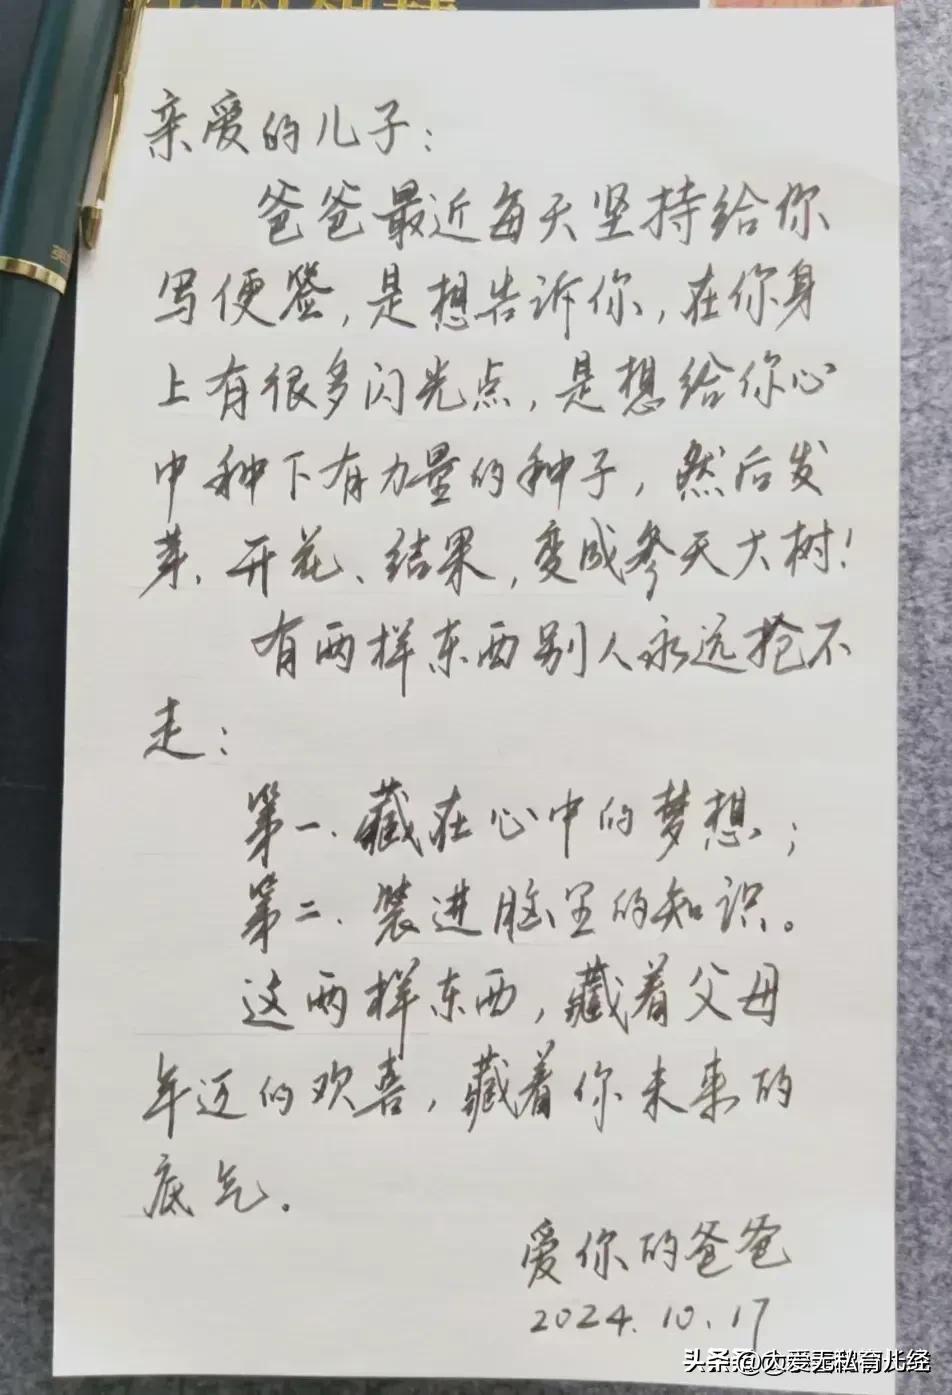 亲爱的儿子：
爸爸最近每天坚持给你
写便签，是想告诉你，在你身
上有很多闪光点，是想给你心
中种下有力量的种子，然后发
芽、开花、结果，变成参天大树！
有两样东西别人永远抢不
走：
第一、藏在心中的梦想；
第二、装进脑里的知识。
这两样东西，藏着父母
年迈的欢喜，藏着你未来的
底气。
爱你的爸爸
2024.10.17
头条 @大爱无私育儿经